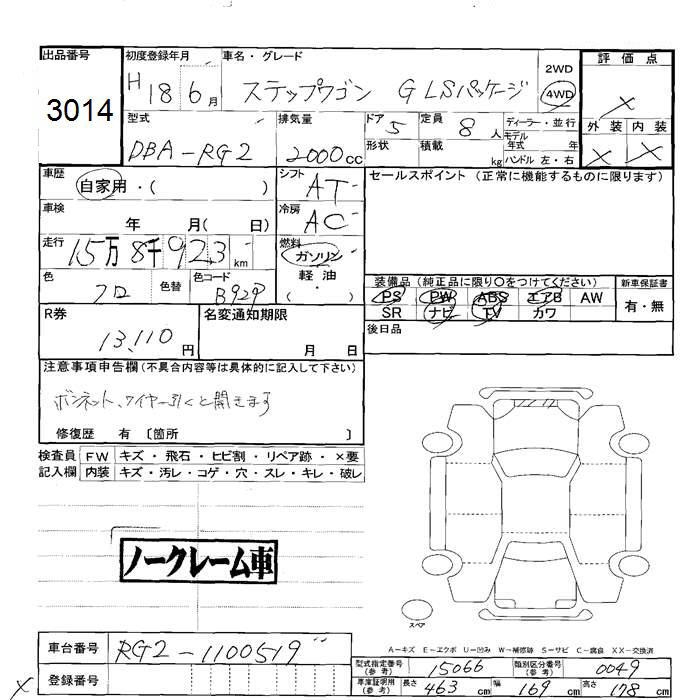 出品番号
3014
初度登録年月
H 18 6月
車名・グレード
ステップワゴン G LSパッケージ
2WD
4WD
評価点
×
外装 内装
× ×
型式
DBA-RG2
排気量
2000cc
ドア 5
形状
定員 8 人
積載 kg
ディーラー・並行
モデル
年式 年
ハンドル 左・右
車歴
自家用・( )
シフト AT
セールスポイント (正常に機能するものに限ります)
車検
年 月( 日)
冷房 AC
走行 15万8千923km
燃料
ガソリン
軽油
( )
色 クロ
色替
色コード B92P
装備品(純正品に限り○をつけてください)
PS PW ABS エアB AW
SR ナビ TV カワ
新車保証書
有・無
後日品
R券
13,110円
名変通知期限
月 日
注意事項申告欄(不具合内容等は具体的に記入して下さい)
ボンネット、ワイヤー引くと開きます
修復歴 有 〔箇所 〕
検査員 FW キズ・飛石・ヒビ割・リペア跡・×要
記入欄 内装 キズ・汚レ・コゲ・穴・スレ・キレ・破レ
ノークレーム車
スペア
A-キズ E-エクボ U-凹み W-補修跡 S-サビ C-腐食 XX-交換済
車台番号 RG2-1100519
登録番号
×
型式指定番号
(参考)
15066
類別区分番号
(参考)
0049
車庫証明用
(参考)
長さ 463 cm 幅 169 cm 高さ 178 cm